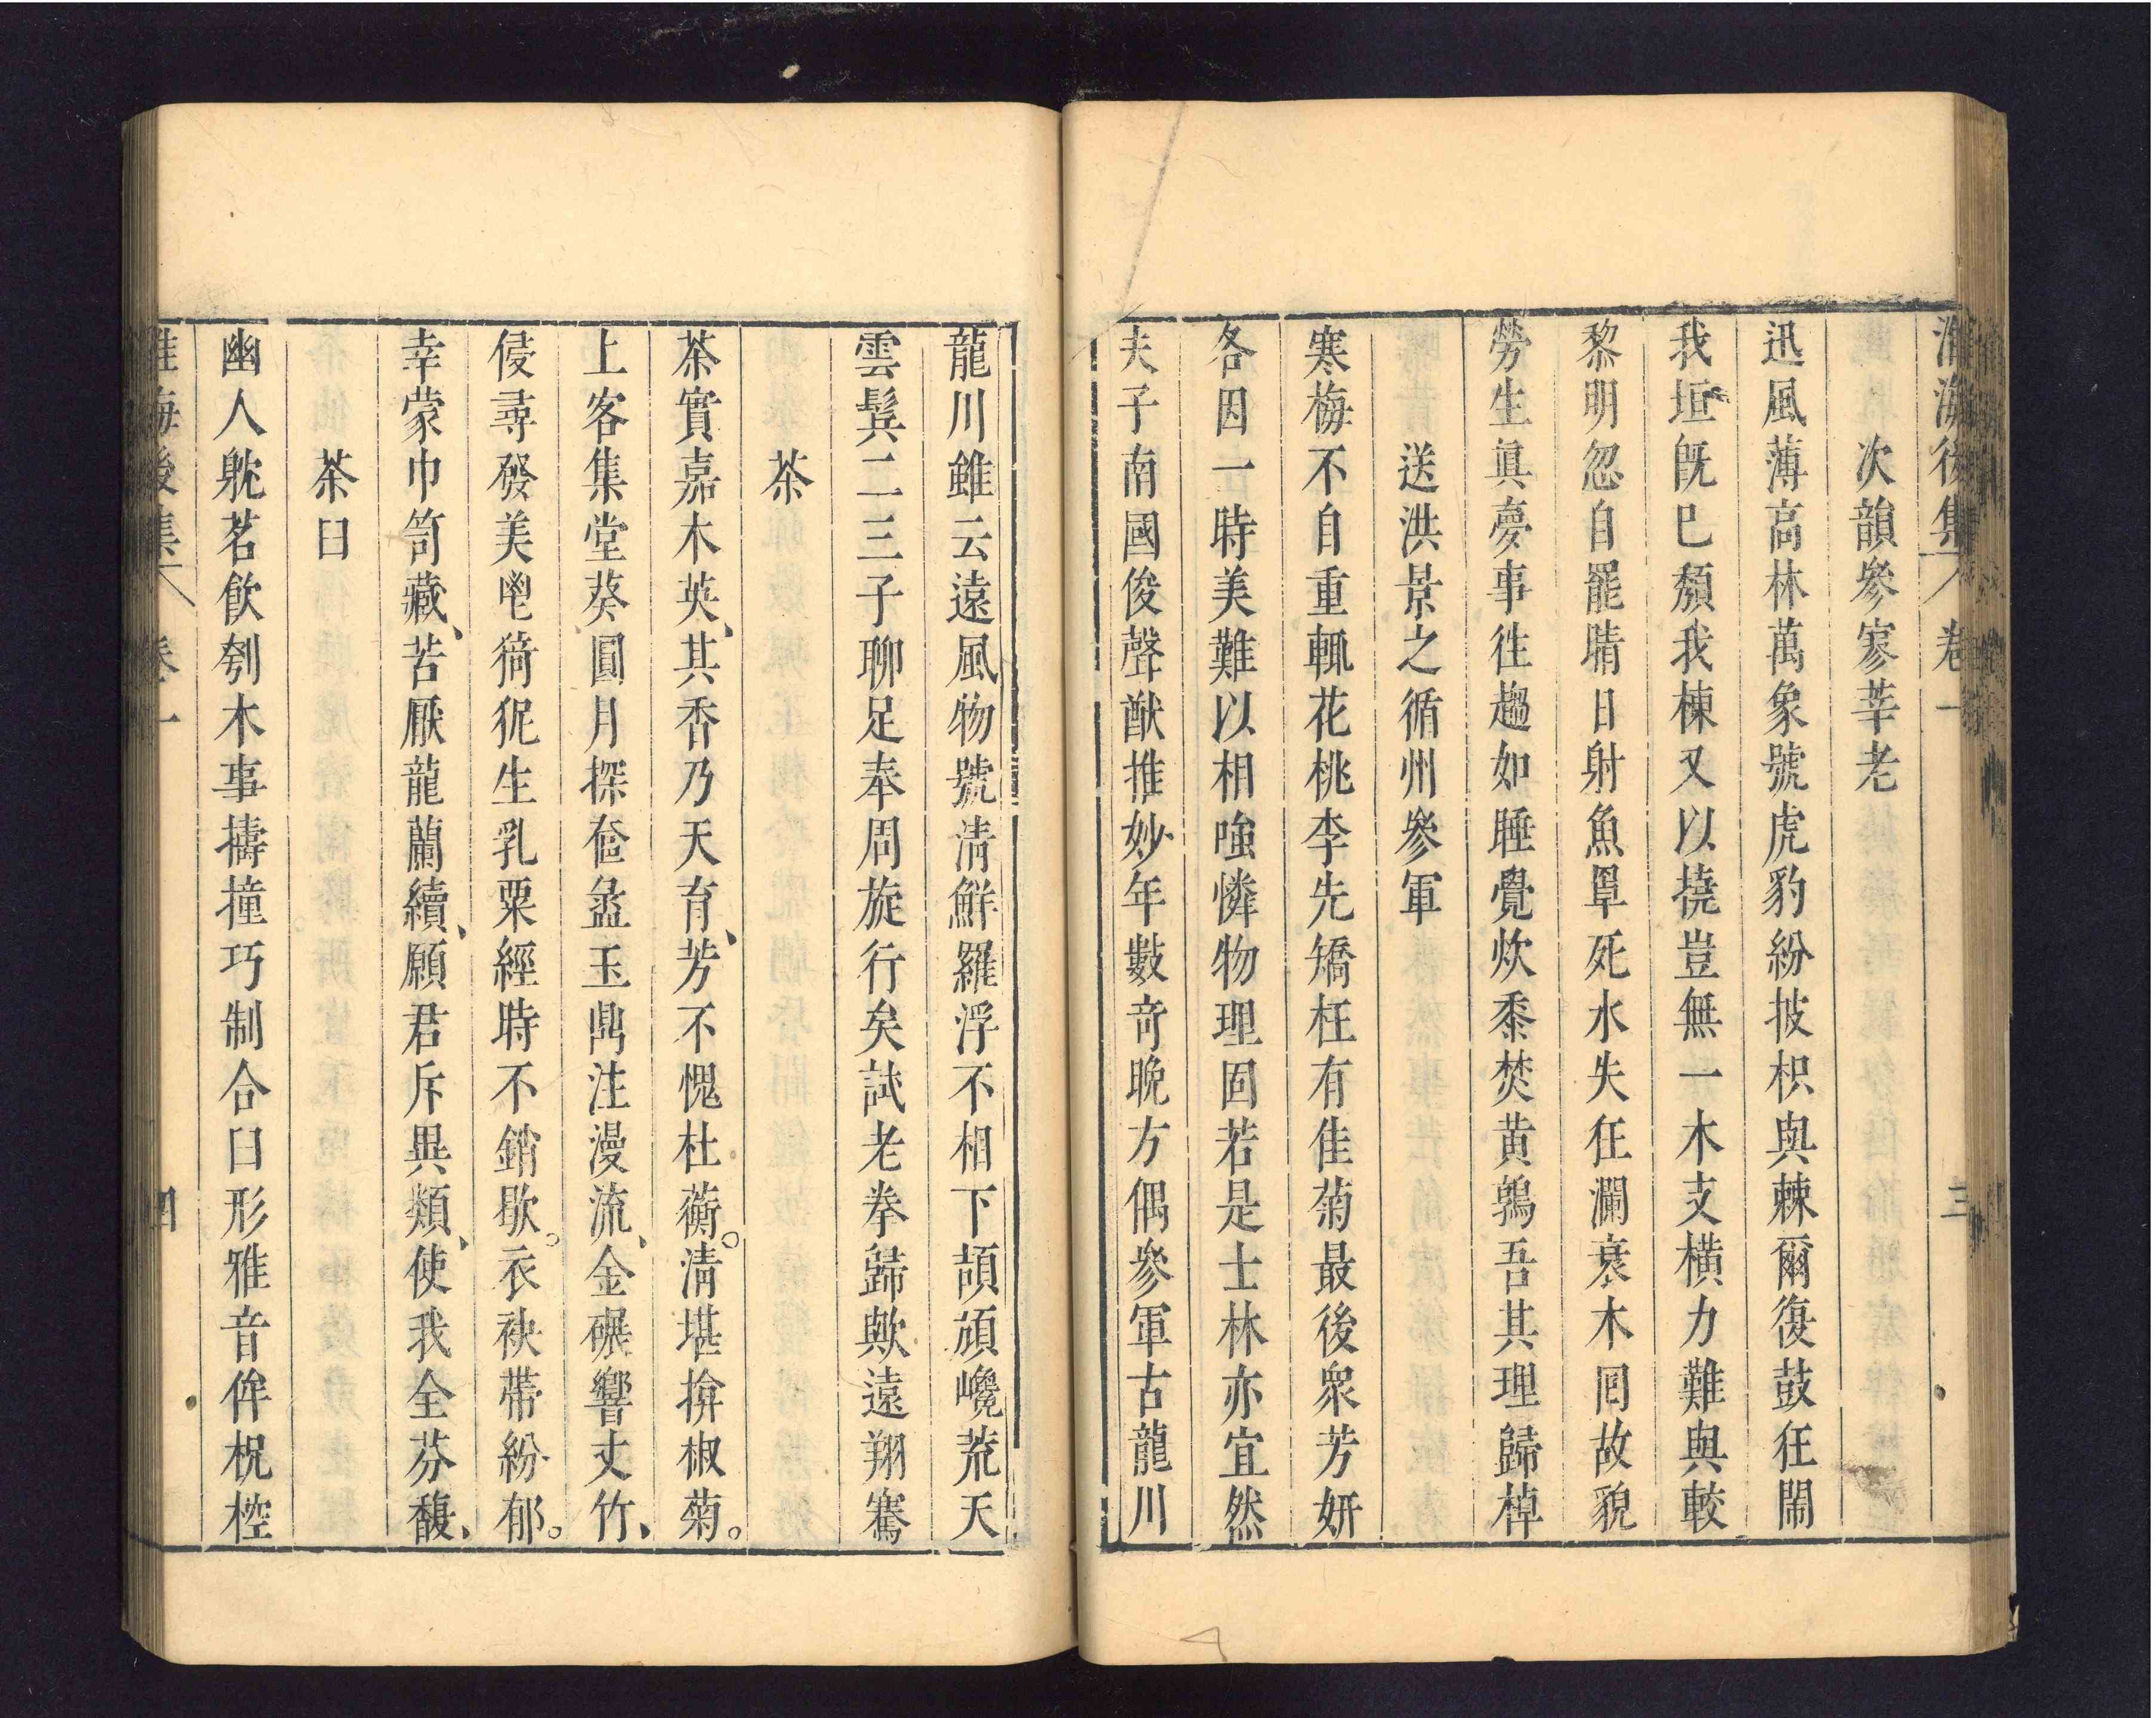 淮海後集 卷一 三
次韻參寥莘老
迅風薄高林萬象號虎豹紛披枳與棘爾復鼓狂鬧
我垣旣已頹我棟又以撓豈無一木支橫力難與較
黎明忽自罷晴日射魚罩死水失狂瀾衰木罔故貌
勞生眞夢事往趨如睡覺炊黍焚黄鷄吾其理歸棹
送洪景之循州參軍
寒梅不自重輒花桃李先矯枉有佳菊最後衆芳妍
各因一時美難以相強憐物理固若是士林亦宜然
夫子南國俊聲猷推妙年數奇晚方偶參軍古龍川
龍川雖云遠風物號淸鮮羅浮不相下頡頏巉荒天
雲鬂二三子聊足奉周旋行矣試老拳歸歟遠翔騫
茶
茶實嘉木英、其香乃天育、芳不愧杜蘅。淸堪揜椒菊。
上客集堂葵、圓月探奩盝玉鼎注漫流、金碾響丈竹、
侵尋發美鬯猗狔生乳粟經時不銷歇。衣袂帶紛郁。
幸蒙巾笥藏、苦厭龍蘭續、願君斥異類、使我全芬馥、
茶臼
幽人躭茗飮刳木事擣撞巧制合臼形雅音侔柷椌
淮海後集 卷一 四